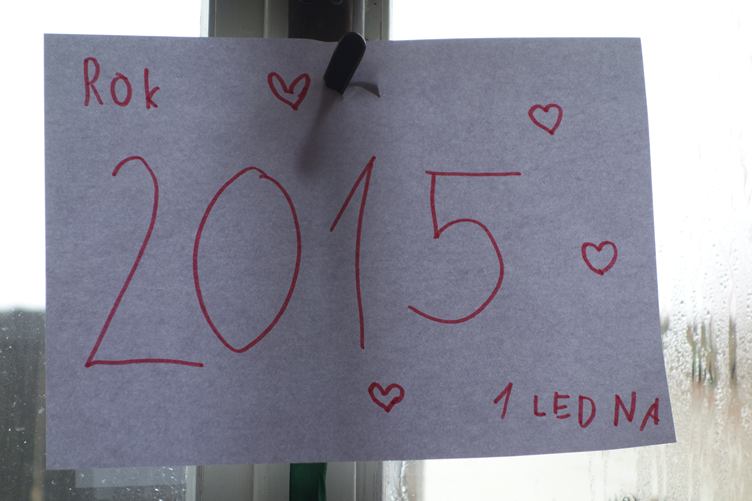 Rok
2015
1 LEDNA